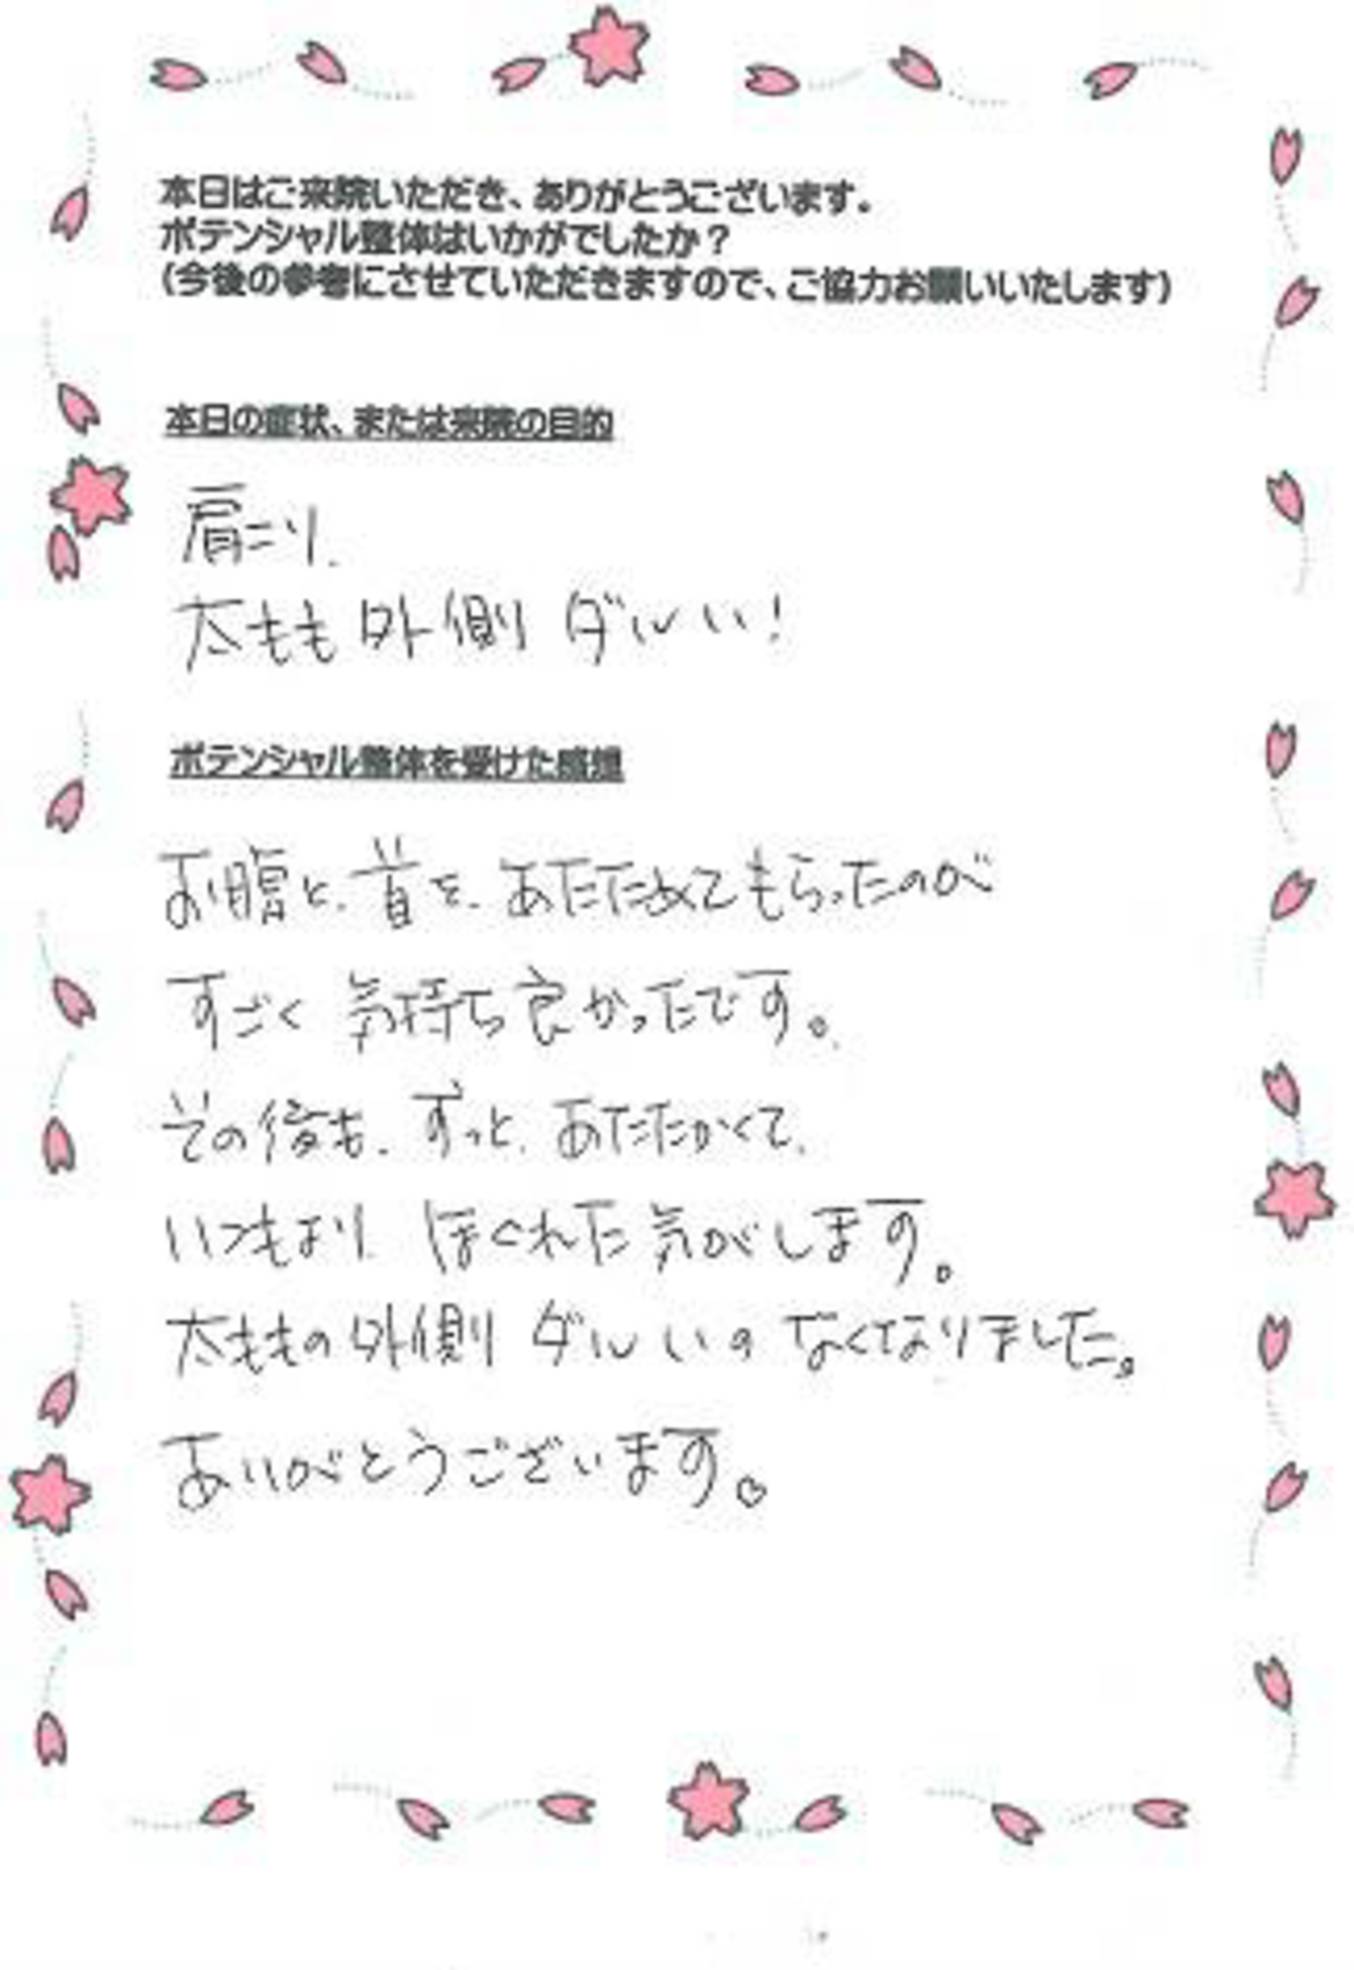 本日はご来院いただき、ありがとうございます。
ポテンシャル整体はいかがでしたか？
(今後の参考にさせていただきますので、ご協力お願いいたします)
本日の症状、または来院の目的
肩こり.
太もも 外側 ダルい!
ポテンシャル整体を受けた感想
お腹と、首を、あたためてもらったのが
すごく 気持ち良かったです。
その後も、ずっと、あたたかくて、
いつもより ほぐれた気がします。
太ももの外側 ダルいの なくなりました。
ありがとうございます。♡